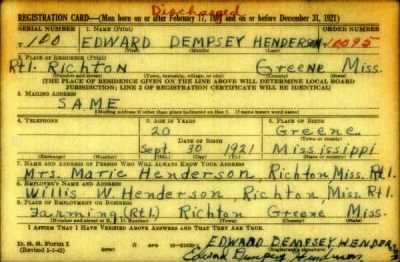 Discharged
REGISTRATION CARD—(Men born on or after February 17, 1897 and on or before December 31, 1921)
SERIAL NUMBER 1. NAME (Print) ORDER NUMBER
T 100 EDWARD DEMPSEY HENDERSON 10095
(First) (Middle) (Last)
2. PLACE OF RESIDENCE (Print)
Rt1. Richton Greene Miss.
(Number and street) (Town, township, village, or city) (County) (State)
[THE PLACE OF RESIDENCE GIVEN ON THE LINE ABOVE WILL DETERMINE LOCAL BOARD
JURISDICTION; LINE 2 OF REGISTRATION CERTIFICATE WILL BE IDENTICAL]
3. MAILING ADDRESS
SAME
(Mailing address if other than place indicated on line 2. If same insert word same)
4. TELEPHONE 5. AGE IN YEARS 6. PLACE OF BIRTH
20 Greene
DATE OF BIRTH (Town or county)
Sept. 30 1921 Mississippi
(Exchange) (Number) (Mo.) (Day) (Yr.) (State or country)
7. NAME AND ADDRESS OF PERSON WHO WILL ALWAYS KNOW YOUR ADDRESS
Mrs. Marie Henderson, Richton, Miss. Rt1.
8. EMPLOYER'S NAME AND ADDRESS
Willis W. Henderson, Richton, Miss. Rt1.
9. PLACE OF EMPLOYMENT OR BUSINESS
Farming (Rt1.) Richton Greene Miss.
(Number and street or R. F. D. number) (Town) (County) (State)
I AFFIRM THAT I HAVE VERIFIED ABOVE ANSWERS AND THAT THEY ARE TRUE.
D. S. S. Form 1 GPO EDWARD DEMPSEY HENDER
(Revised 1-1-42) Edward Dempsey Henderson